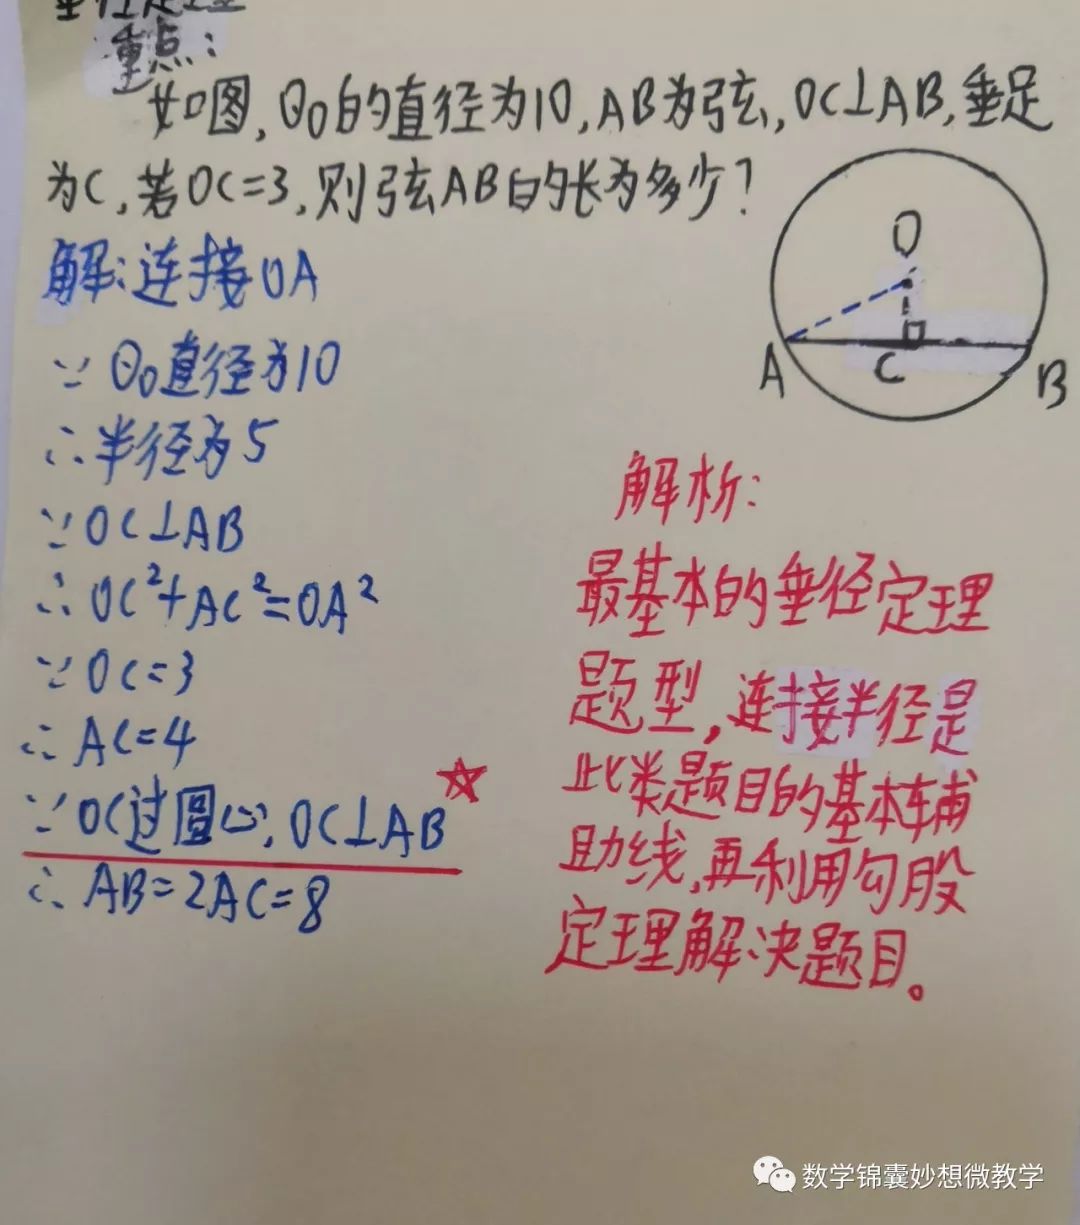 垂径定理
重点:
如图,⊙O的直径为10,AB为弦,OC⊥AB,垂足
为C,若OC=3,则弦AB的长为多少?
O
A
C
B
解:连接OA
∵ ⊙O直径为10
∴半径为5
∵OC⊥AB
∴OC²+AC²=OA²
∵OC=3
∴AC=4
∵OC过圆心,OC⊥AB
∴AB=2AC=8
解析:
最基本的垂径定理
题型,连接半径是
此类题目的基本辅
助线,再利用勾股
定理解决题目。
数学锦囊妙想微教学